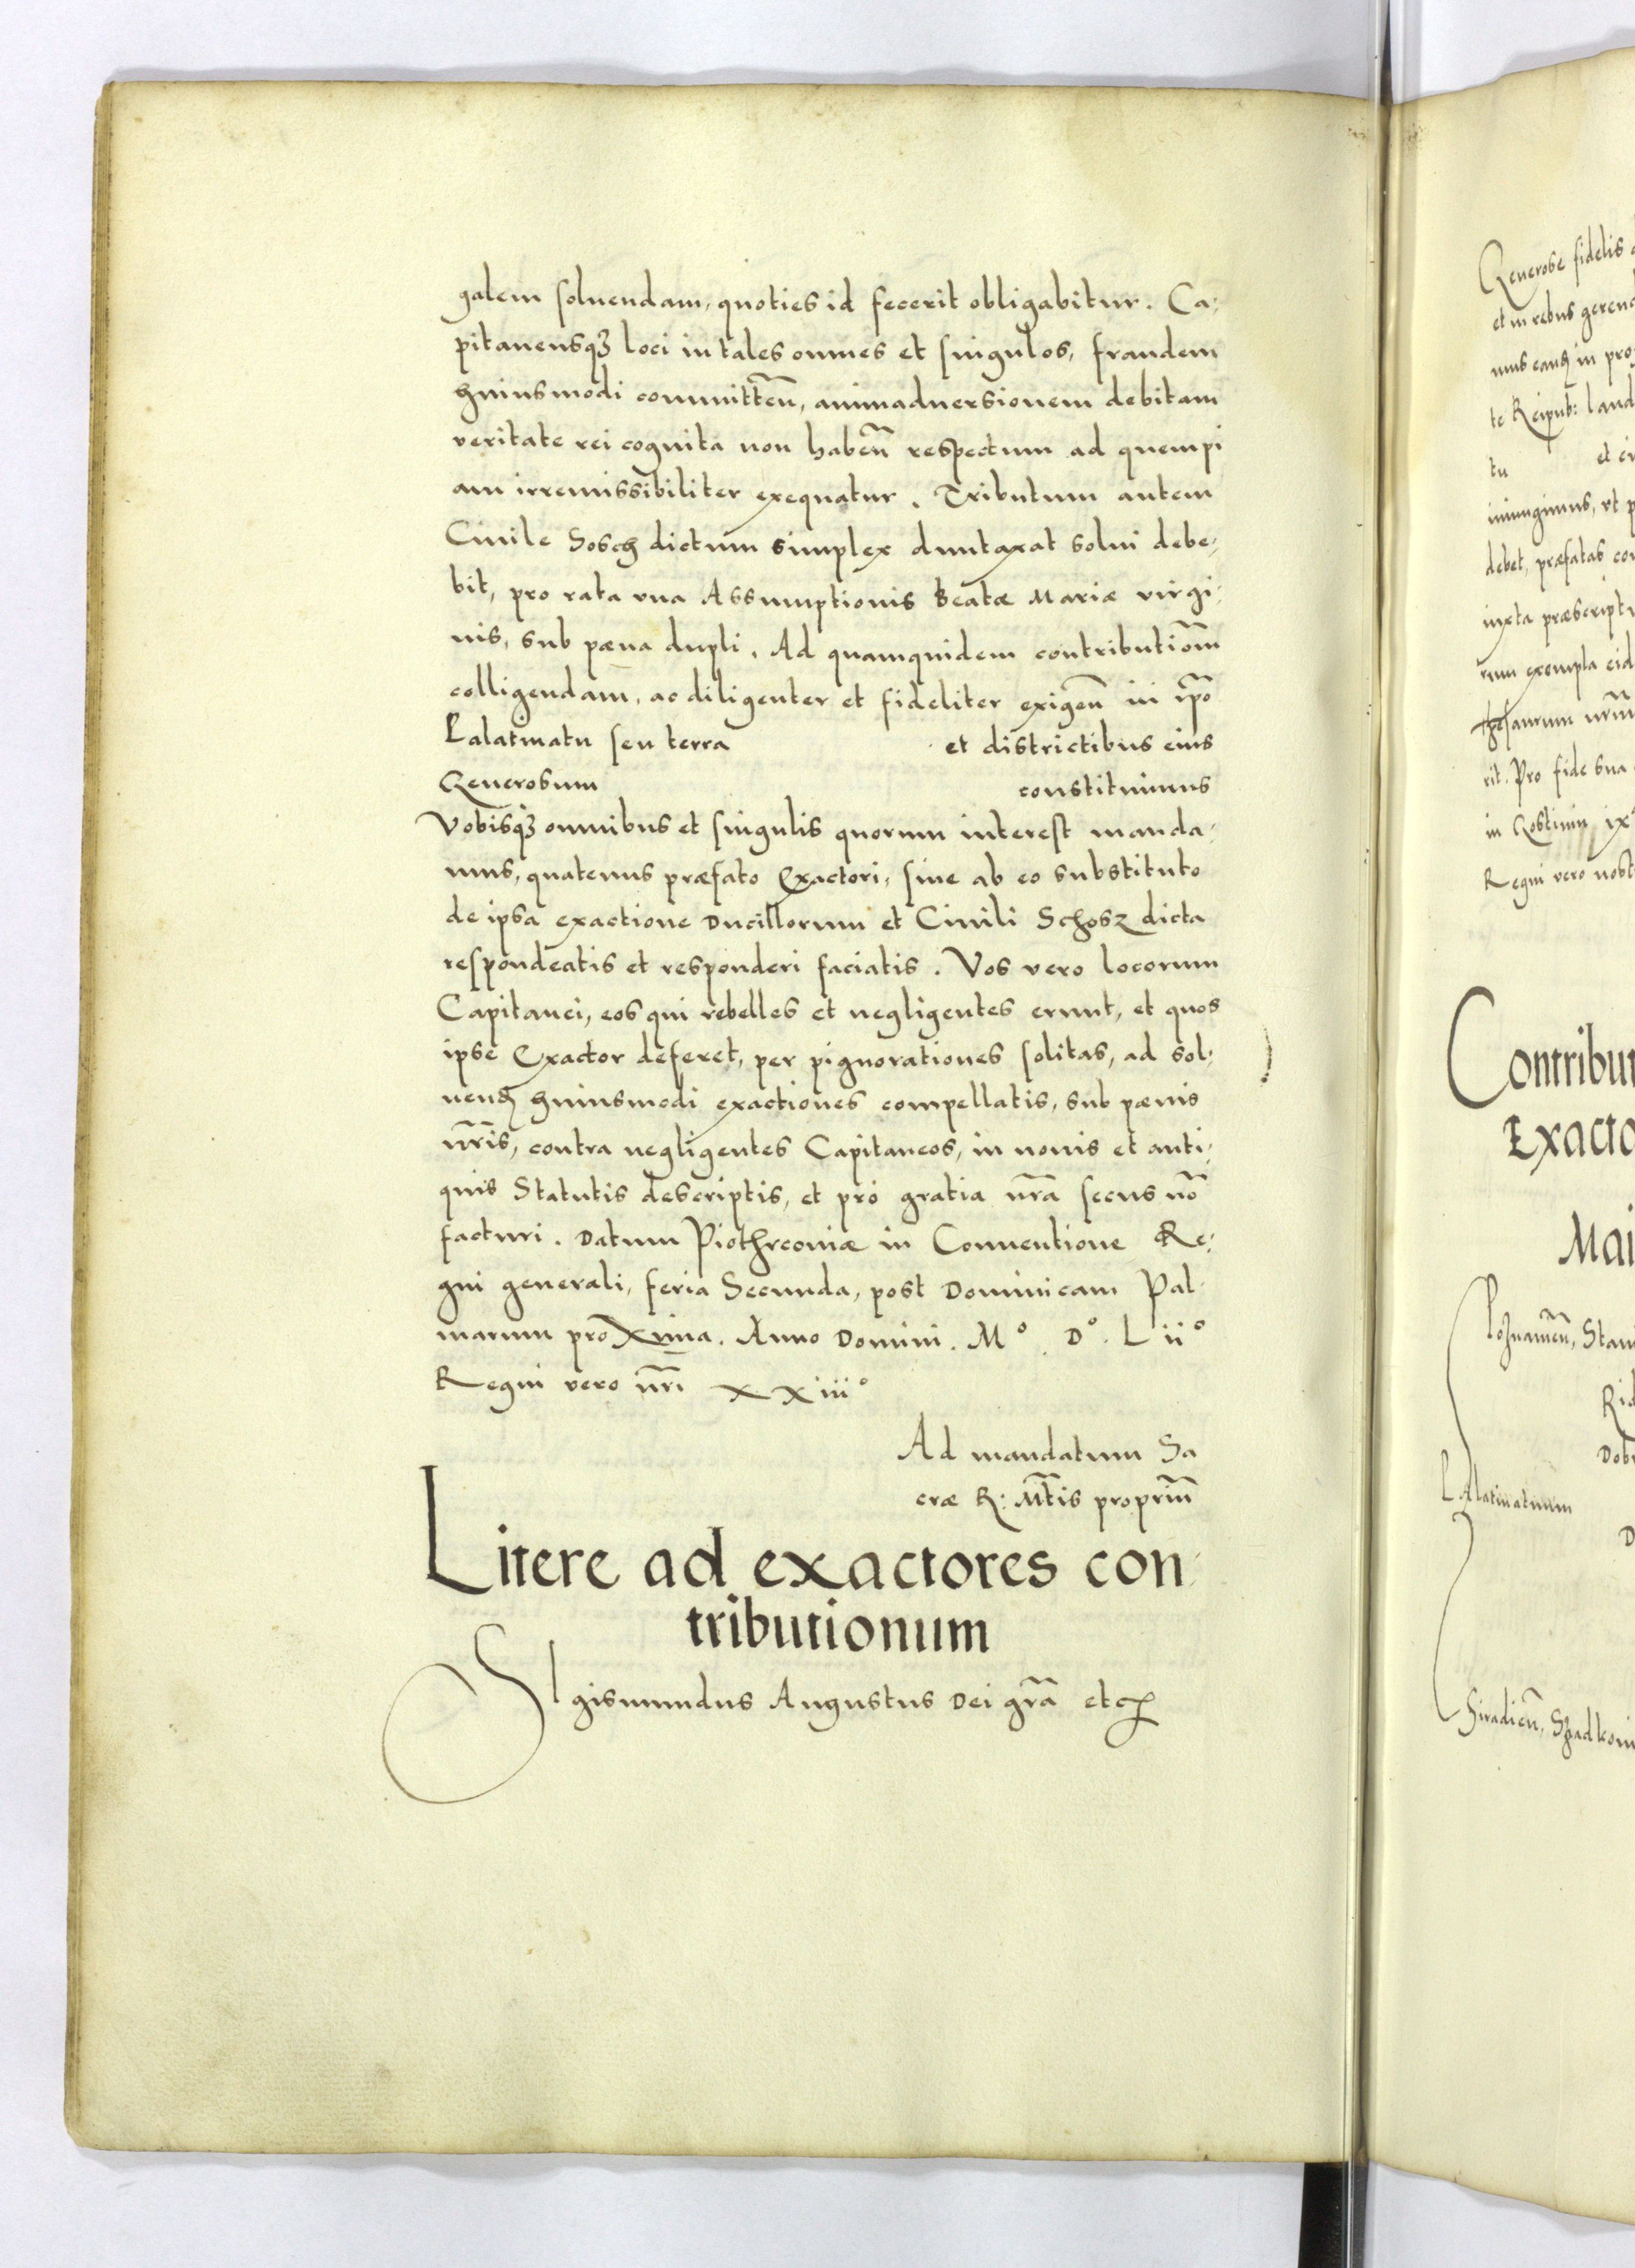 galem soluendam, quoties id fecerit obligabitur. Ca,
pitaneusqꝫ loci in tales omnes et singulos, fraudem
huiusmodi committen̄, animaduersionem debitam
veritate rei cognita non haben̄ respectum ad quempi
am irremissibiliter exequatur. Tributum autem
Ciuile Sosch dictum simplex duntaxat solui debe,
bit, pro rata vna Assumptionis Beatæ Mariæ virgi,
nis, sub pæna dupli. Ad quamquidem contributiōm
colligendam, ac diligenter et fideliter exigen̄ in ip̄o
Palatinatu seu terra et districtibus eius
Generosum constituimus
Vobisqꝫ omnibus et singulis quorum interest manda,
mus, quatenus præfato Exactori, siue ab eo substituto
de ipsa exactione Ducillorum et Ciuili Schosz dicta
respondeatis et responderi faciatis. Vos vero locorum
Capitanei, eos qui rebelles et negligentes erunt, et quos
ipse Exactor deferet, per pignorationes solitas, ad sol,
uend huiusmodi exactiones compellatis, sub pænis
nr̄is, contra negligentes Capitaneos, in nouis et anti,
quis Statutis descriptis, et pro gratia nr̄a secus nō
facturi. Datum Piothrcouiæ in Conuentione Re,
gni generali, feria Secunda, post Dominicam Pal,
marum proXima. Anno Domini. M° D°. L ii°
Regni vero nr̄i XXiii°
Ad mandatum Sa
cræ R: Mt̄is propriū
Litere ad exactores con,
tributionum
SIgismundus Augustus Dei gr̄a etc
Generose fidelis
et in rebus gerend
mus eand in pro
te Reipub: laud
tu et ei
iniungimus, vt p
debet, præfatas con
iuxta præscript
rum exempla eid
thesaurum nr̄m
rit. Pro fide sua
in Gostinin ix
Regni vero nost
Contribut
Exacto
Mai
Poznanien̄, Stani
Rid
Dob
PAlatinatuum
D
Siradien̄, Szadkoui